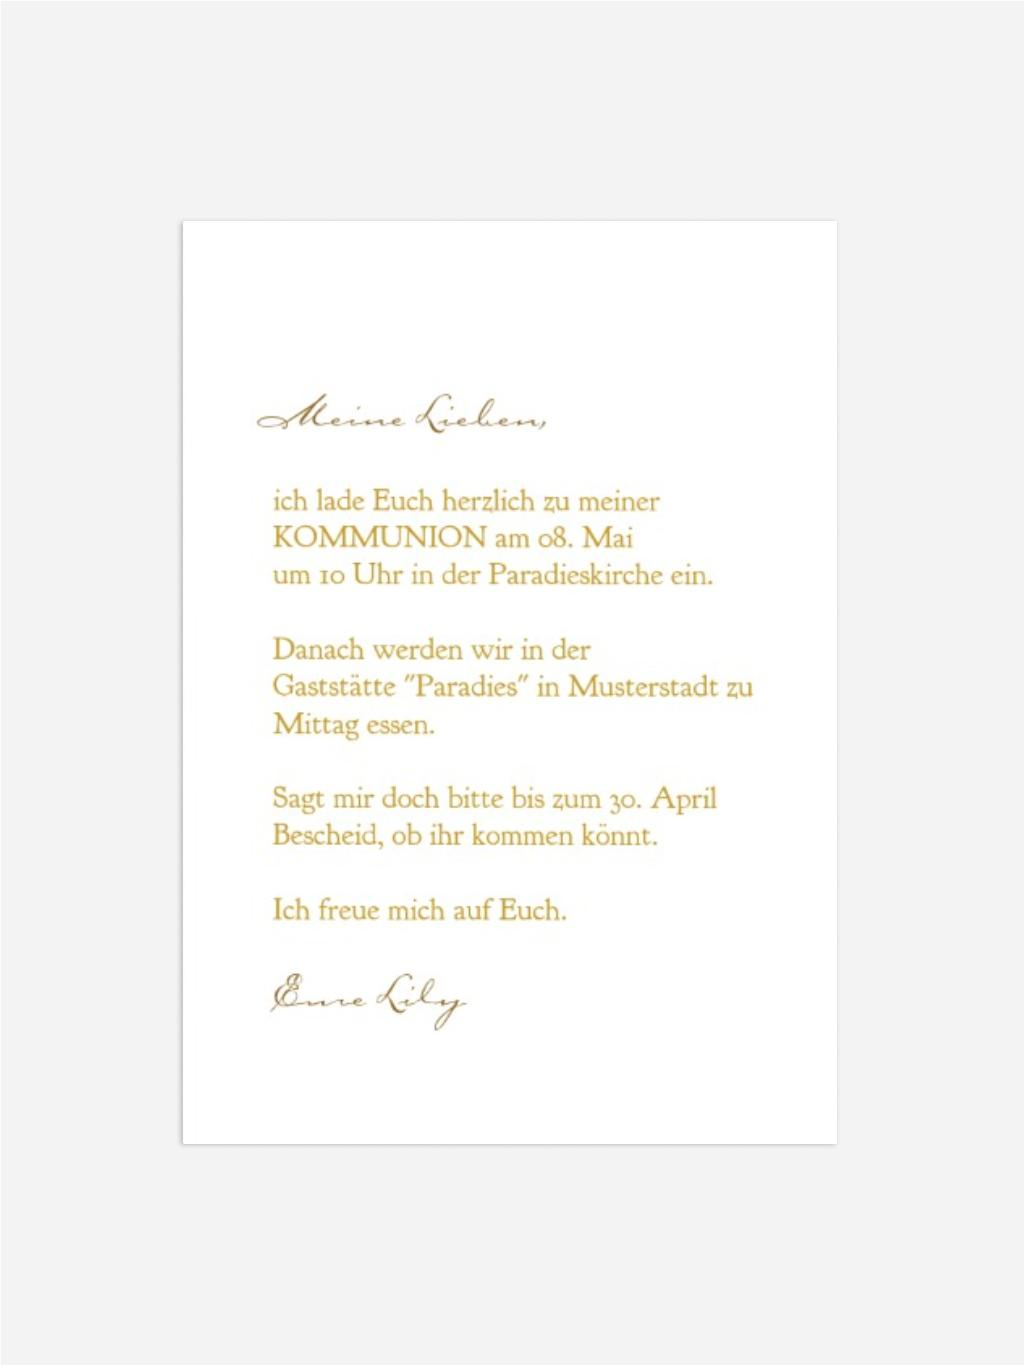 Meine Lieben,
ich lade Euch herzlich zu meiner
KOMMUNION am 08. Mai
um 10 Uhr in der Paradieskirche ein.
Danach werden wir in der
Gaststätte "Paradies" in Musterstadt zu
Mittag essen.
Sagt mir doch bitte bis zum 30. April
Bescheid, ob ihr kommen könnt.
Ich freue mich auf Euch.
Eure Lily